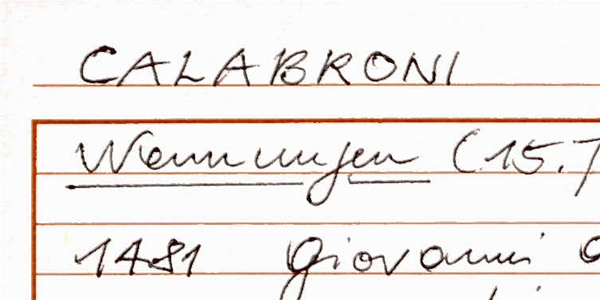 CALABRONI
Nennungen (15.
1481 Giovanni